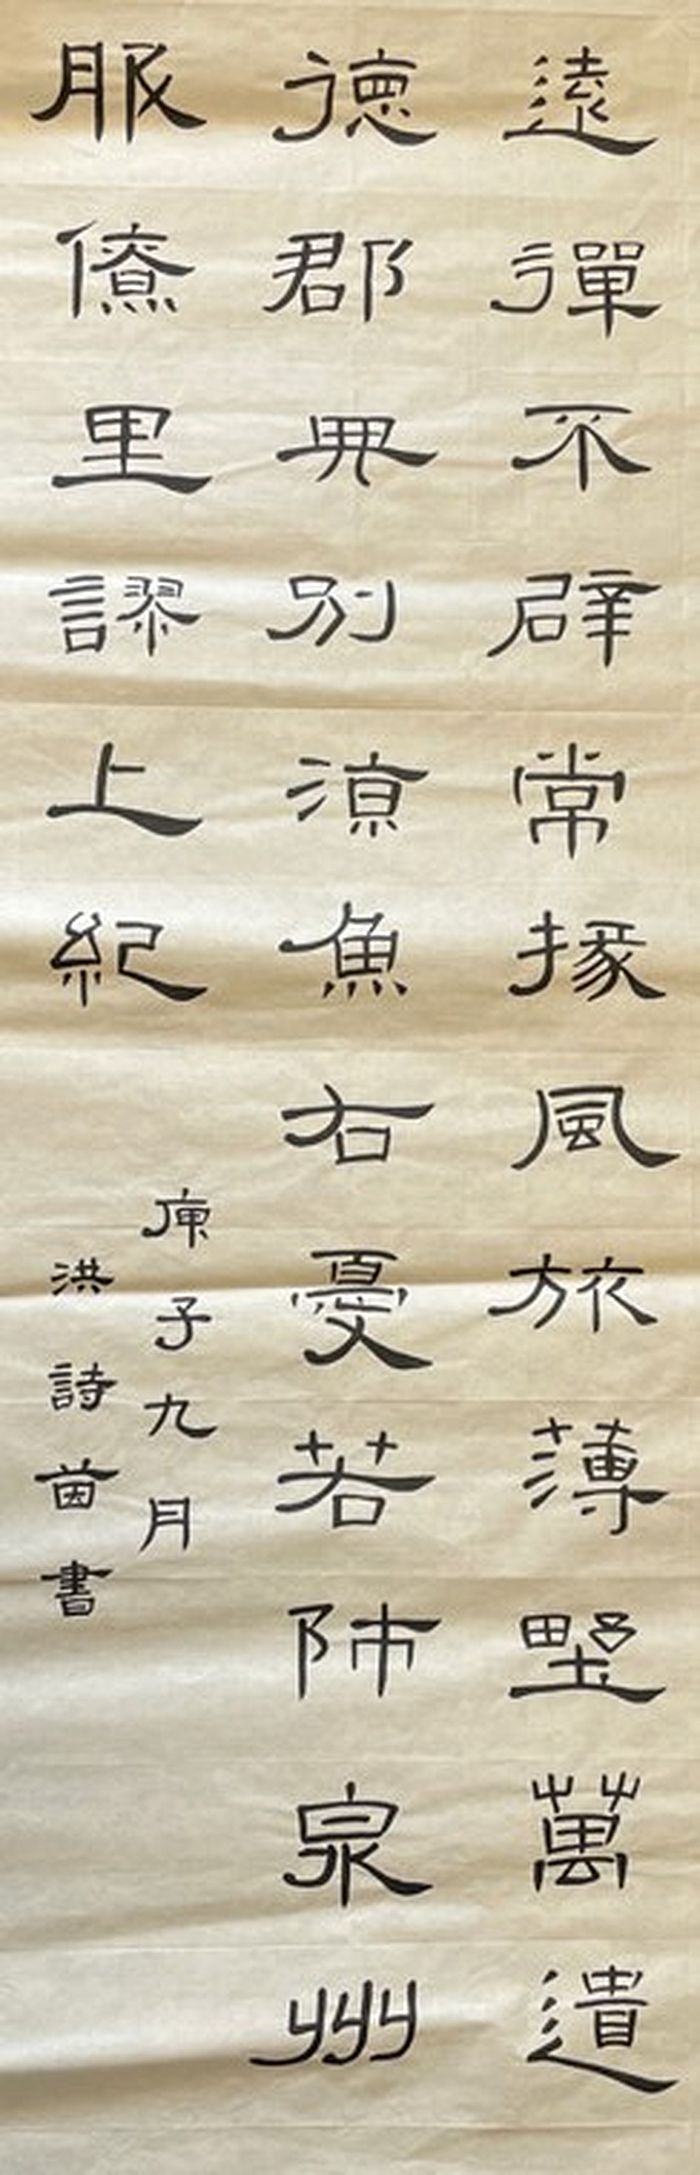 遠彈不辟常掾風旅薄野萬遺
德郡典別涼魚右憂若沛泉州
服僚里謬上紀
庚子九月
洪詩茵書